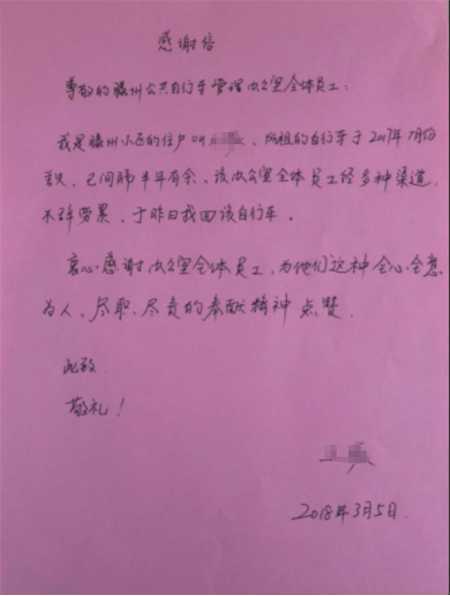 感谢信
尊敬的滕州公共自行车管理办公室全体员工：
我是滕州小区的住户叫 、所租的自行车于2017年7月份
丢失，已间隔半年有余、该办公室全体员工经多种渠道，
不辞劳累，于昨日找回该自行车。
衷心感谢办公室全体员工，为他们这种全心全意
为人、尽职、尽责的奉献精神点赞。
此致
敬礼！
2018年3月5日